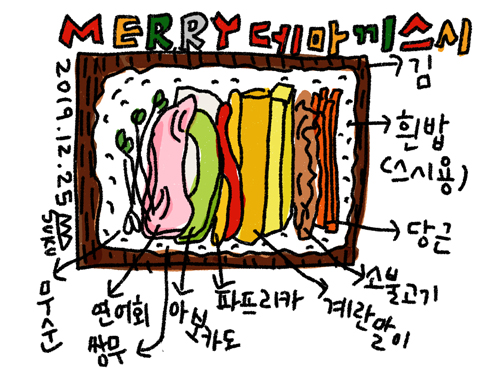 MERRY데마끼스시
2019.12.25
SUKU
김
흰밥
(스시용)
당근
소불고기
계란말이
파프리카
아보카도
쌈무
연어회
무순